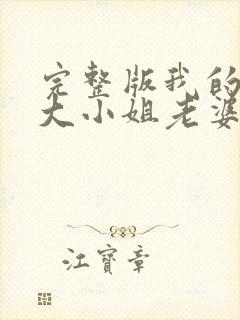 完整版我的
大小姐老婆
江寶章